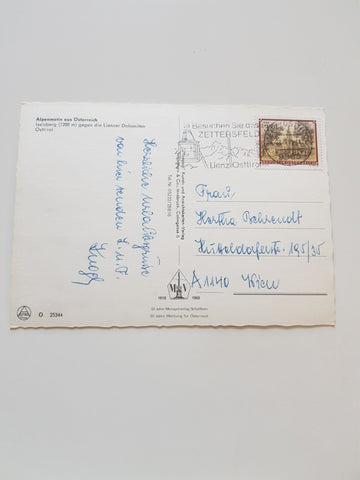 Alpenmotiv aus Österreich
Iselsberg (1200 m) gegen die Lienzer Dolomiten
Osttirol
Herzliche Urlaubsgrüsse
von hier senden L. u. F.
Besuchen Sie das
ZETTERSFELD
Lienz/Osttirol
REPUBLIK ÖSTERREICH
Frau
Hertha Behrendt
A 1140 Wien
Kunst- und Ansichtskarten-Verlag
Tel. Nr.
1910 1960
50 Jahre Monopolverlag Schöllhorn
50 Jahre Werbung für Österreich
O 25344